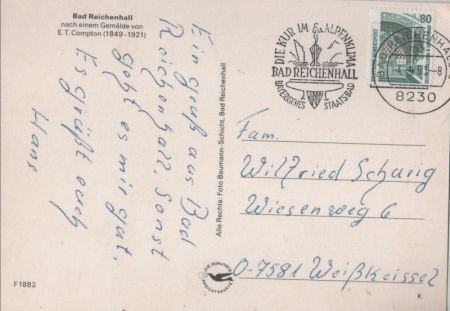 Bad Reichenhall
nach einem Gemälde von
E. T. Compton (1849-1921)
Ein gruß aus Bad
Reichenhall. Sonst
geht es mir gut.
Es grüßt euch
Hans
Alle Rechte: Foto Baumann-Schicht, Bad Reichenhall
F1882
DIE KUR IM ALPENKLIMA
BAD REICHENHALL
BAYERISCHES STAATSBAD
80
8230
Fam.
Wilfried Schurig
Wiesenweg 6
O-7581 Weißkeissel
K